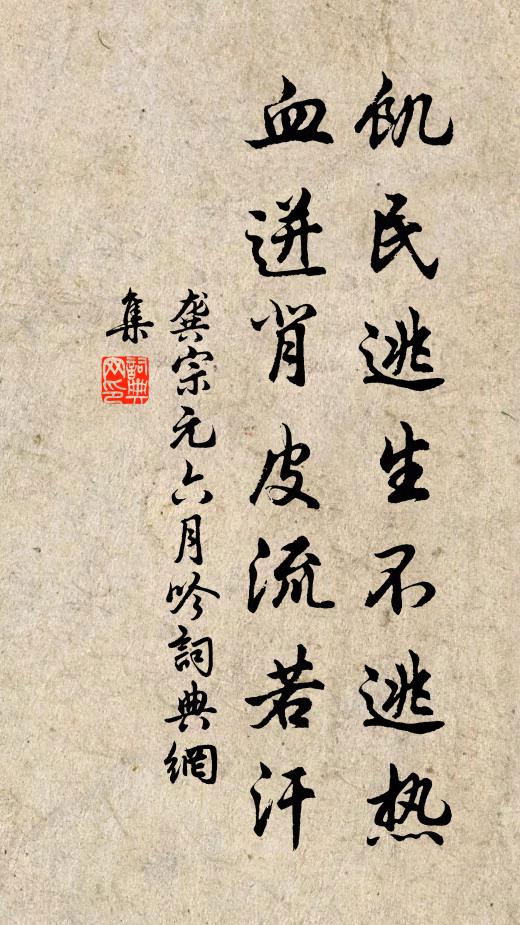 飢民逃生不逃热
血迸背皮流若汗
龚宗元六月吟詞典網
集
詞典
网印